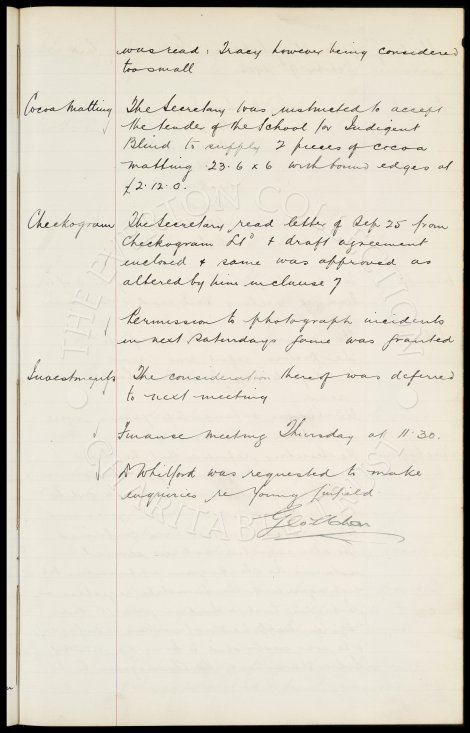 was read: Tracy however being considered
too small
Cocoa Matting The Secretary was instructed to accept
the tender of the School for Indigent
Blind to supply 2 pieces of cocoa
matting 23.6 x 6 with bound edges at
£2.12.0.
Checkogram The Secretary read letter of Sep 25 from
Checkogram Ltd & draft agreement
enclosed & same was approved as
altered by him in clause 7
Permission to photograph incidents
in next Saturdays game was granted
Investments The consideration thereof was deferred
to next meeting
Finance meeting Thursday at 11.30.
Whitford was requested to make
enquiries re Young Linfield
Geo
THE EVERTON COLLECTION
CHARITABLE TRUST